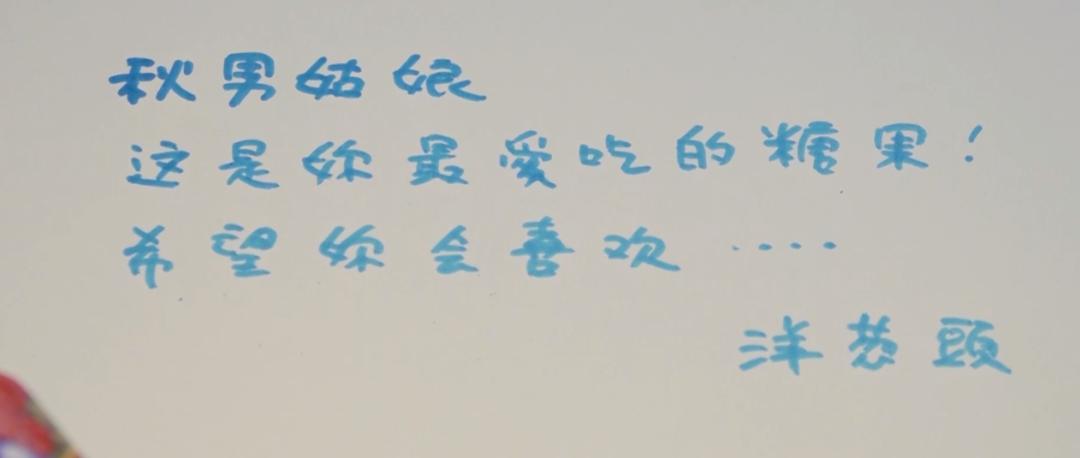 秋男姑娘
这是妳最愛吃的糖果！
希望妳会喜欢····
洋葱頭